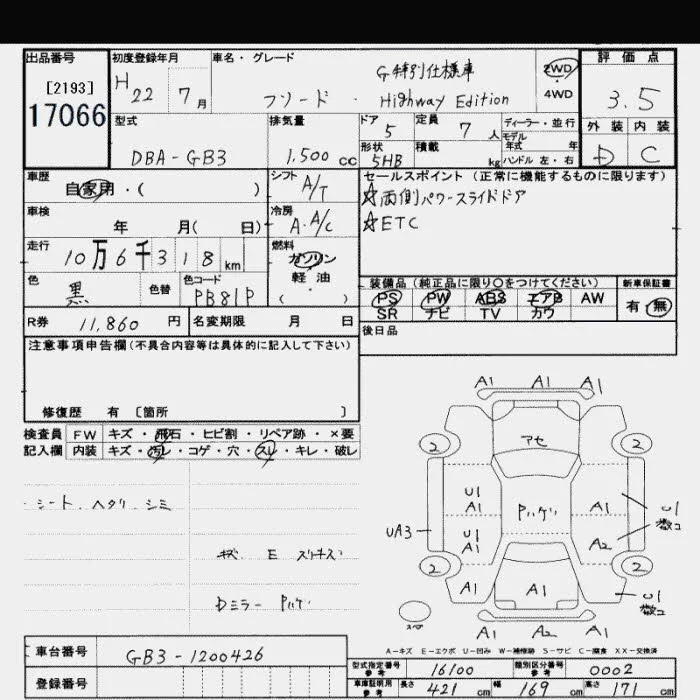 出品番号 初度登録年月 車名・グレード 評価点
[2193] H 22 7月 G特別仕様車 2WD
17066 フリード・Highway Edition 4WD 3.5
型式 排気量 ドア 定員 ディーラー・並行 外装 内装
5 7人 モデル年式 年
DBA-GB3 1,500cc 形状 積載 D C
5HB kg ハンドル 左・右
車歴 シフト セールスポイント(正常に機能するものに限ります)
自家用・( ) A/T ☆両側パワースライドドア
車検 冷房 ☆ETC
年 月( 日) A.A/C
走行 燃料
10万6千318km ガソリン
色 色替 色コード 軽油 装備品(純正品に限り○をつけてください) 新車保証書
黒 PB81P ( ) PS PW ABS エアB AW 有・無
R券 11,860円 名変期限 月 日 SR ナビ TV カワ
注意事項申告欄(不具合内容等は具体的に記入して下さい) 後日品
修復歴 有 〔箇所 〕
検査員 FW キズ・飛石・ヒビ割・リペア跡・×要
記入欄 内装 キズ・汚レ・コゲ・穴・スレ・キレ・破レ
シート.ヘタリ.シミ
Dミラー Pハゲ
A1 A1 A1
2 アセ 2
U1 A1 Pハゲ A1 U1
UA3 U1 A1 A2
2 2
A1 A1 U1
スペア A1 A2
A-キズ E-エクボ U-凹み W-補修跡 S-サビ C-腐食 XX-交換済
車台番号 GB3-1200426
登録番号
型式指定番号 参考 16100 類別区分番号 参考 0002
車庫証明用 参考 長さ 421cm 幅 169cm 高さ 171cm